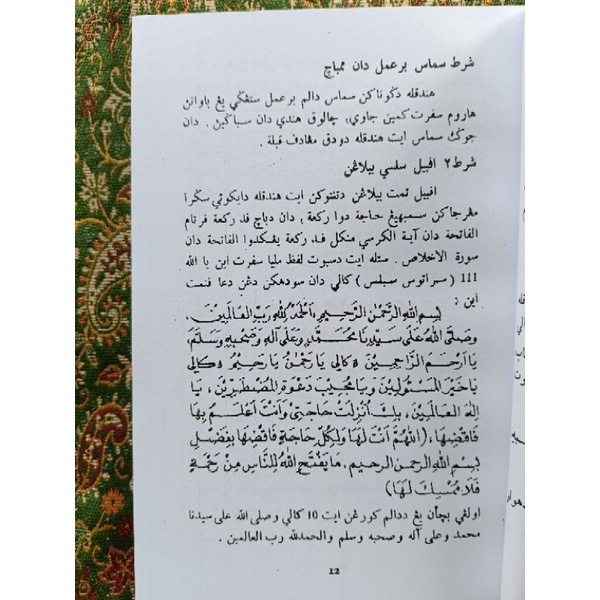 شرط سماس برعمل دان ممباچ
هندقله دݢوناکن سماس دالم برعمل سنڠݢي يڠ باوانن
هاروم سفرت کمين جاوي، چالوق هندي دان سباݢين . دان
جوݢ سماس ايت هندقله دودق مڠادف قبلة .
شرط٢ اڤبيل سلسي بيلاڠن
اڤبيل تمت بيلاڠن دتنتوکن ايت هندقله دايکوتي سݢرا
مڠرجاکن سمبهيڠ حاجة دوا رکعة ، دان دباچ ڤد رکعة ڤرتام
الفاتحة دان آية الکرسي منکل ڤد رکعة يڠکدوا الفاتحة دان
سورة الاخلاص . ستله ايت دسبوت لفظ مليا سفرت اين يا الله
111 ( سراتوس سبلس ) کالي دان سودهکن دڠن دعا ڤنمت
اين :
بِسْمِ اللهِ الرَّحْمٰنِ الرَّحِيْمِ، اَلْحَمْدُ لِلّٰهِ رَبِّ الْعَالَمِيْنَ،
وَصَلَّى اللهُ عَلَى سَيِّدِنَا مُحَمَّدٍ وَعَلَى آلِهِ وَصَحْبِهِ وَسَلَّمَ،
يَا اَرْحَمَ الرَّاحِمِيْنَ ٥ کالي يَا رَحْمٰنُ يَا رَحِيْمُ ٥ کالي
يَا خَيْرَ الْمَسْئُولِيْنَ وَيَا مُجِيْبَ دَعْوَةِ الْمُضْطَرِّيْنَ، يَا
اِلٰهَ الْعَالَمِيْنَ، بِكَ اَنْزَلْتُ حَاجَتِيْ وَاَنْتَ اَعْلَمُ بِهَا
فَاقْضِهَا، (اَللّٰهُمَّ اَنْتَ لَهَا وَلِكُلِّ حَاجَةٍ فَاقْضِهَا بِفَضْلِ
بِسْمِ اللهِ الرَّحْمٰنِ الرَّحِيْمِ، مَا يَفْتَحِ اللهُ لِلنَّاسِ مِنْ رَحْمَةٍ
فَلَا مُمْسِكَ لَهَا)
اولڠي بچأن يڠ ددالم کورڠن ايت 10 کالي وصلى الله على سيدنا
محمد وعلى آله وصحبه وسلم والحمدلله رب العالمين .
12